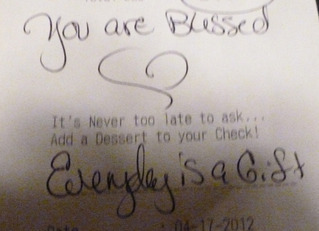 You are Blessed
It's Never too late to ask...
Add a Dessert to your Check!
Everyday is a Gift
Date : 04-17-2012